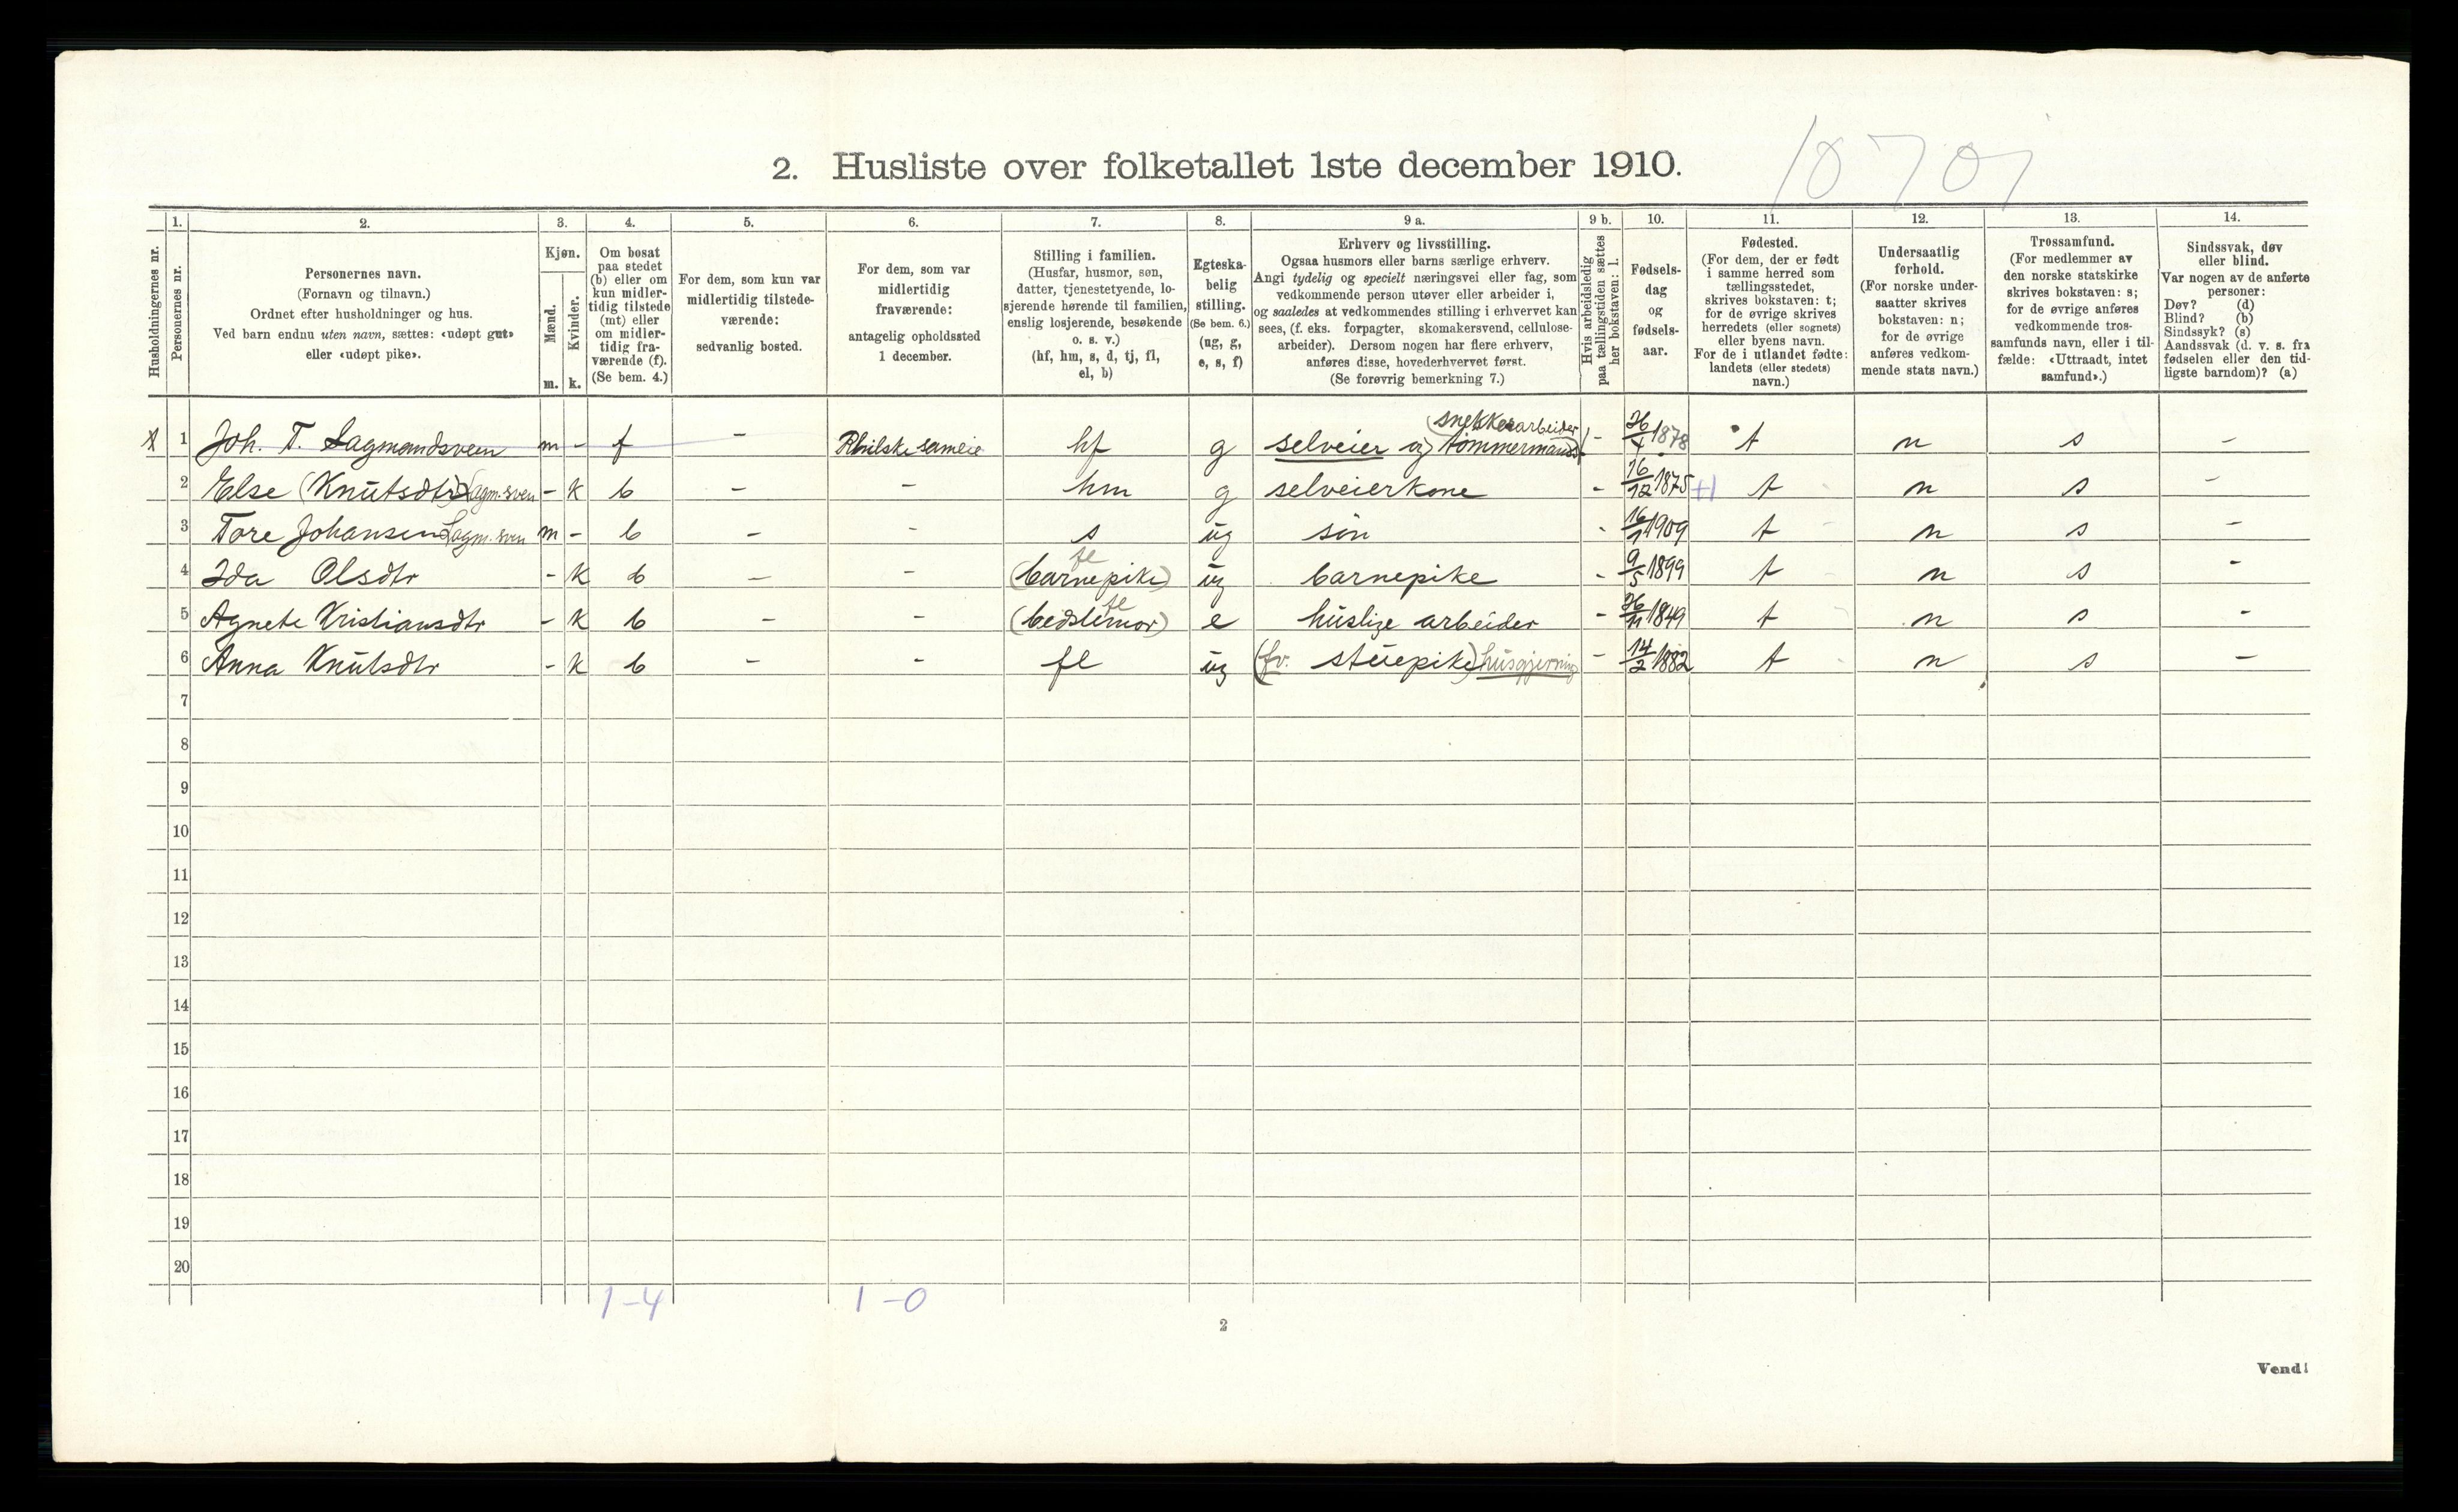 10707
2. Husliste over folketallet 1ste december 1910.
Husholdningernes nr.
1.
Personernes nr.
2.
Personernes navn.
(Fornavn og tilnavn.)
Ordnet efter husholdninger og hus.
Ved barn endnu uten navn, sættes: «udøpt gut»
eller «udøpt pike».
3.
Kjøn.
Mænd.
Kvinder.
m. k.
4.
Om bosat
paa stedet
(b) eller om
kun midler-
tidig tilstede
(mt) eller
om midler-
tidig fra-
værende (f).
(Se bem. 4.)
5.
For dem, som kun var
midlertidig tilstede-
værende:
sedvanlig bosted.
6.
For dem, som var
midlertidig
fraværende:
antagelig opholdssted
1 december.
7.
Stilling i familien.
(Husfar, husmor, søn,
datter, tjenestetyende, lo-
sjerende hørende til familien,
enslig losjerende, besøkende
o. s. v.)
(hf, hm, s, d, tj, fl,
el, b)
8.
Egteska-
belig
stilling.
(Se bem. 6.)
(ug, g,
e, s, f)
9 a.
Erhverv og livsstilling.
Ogsaa husmors eller barns særlige erhverv.
Angi tydelig og specielt næringsvei eller fag, som
vedkommende person utøver eller arbeider i,
og saaledes at vedkommendes stilling i erhvervet kan
sees, (f. eks. forpagter, skomakersvend, cellulose-
arbeider). Dersom nogen har flere erhverv,
anføres disse, hovederhvervet først.
(Se forøvrig bemerkning 7.)
9 b.
Hvis arbeidsledig
paa tællingstiden sættes
her bokstaven: l.
10.
Fødsels-
dag
og
fødsels-
aar.
11.
Fødested.
(For dem, der er født
i samme herred som
tællingsstedet,
skrives bokstaven: t;
for de øvrige skrives
herredets (eller sognets)
eller byens navn.
For de i utlandet fødte:
landets (eller stedets)
navn.)
12.
Undersaatlig
forhold.
(For norske under-
saatter skrives
bokstaven: n;
for de øvrige
anføres vedkom-
mende stats navn.)
13.
Trossamfund.
(For medlemmer av
den norske statskirke
skrives bokstaven: s;
for de øvrige anføres
vedkommende tros-
samfunds navn, eller i til-
fælde: «Uttraadt, intet
samfund».)
14.
Sindssvak, døv
eller blind.
Var nogen av de anførte
personer:
Døv? (d)
Blind? (b)
Sindssyk? (s)
Aandssvak (d. v. s. fra
fødselen eller den tid-
ligste barndom)? (a)
snekkerarbeider
1 Joh. T. Lagmandsveen m - f - sameie hf g selveier og tømmermand - 26/4 1878 t n s -
2 Else (Knutsdtr) Lagm.sven - k b - hm g selveierkone - 16/12 1875 +1 t n s -
3 Tore Johansen Lagm.sven m - b - - s ug søn - 16/1 1909 t n s -
fl
4 Ida Olsdtr - k b - - (barnepike) ug barnepike - 9/5 1899 t n s -
fl
5 Agnete Kristiansdtr - k b - - (bedstemor) e huslige arbeider - 26/11 1849 t n s -
6 Anna Knutsdtr - k b - - fl ug (fv. stuepike) husgjerning - 14/2 1882 t n s -
7
8
9
10
11
12
13
14
15
16
17
18
19
20
1-4 1-0
2
Vend!